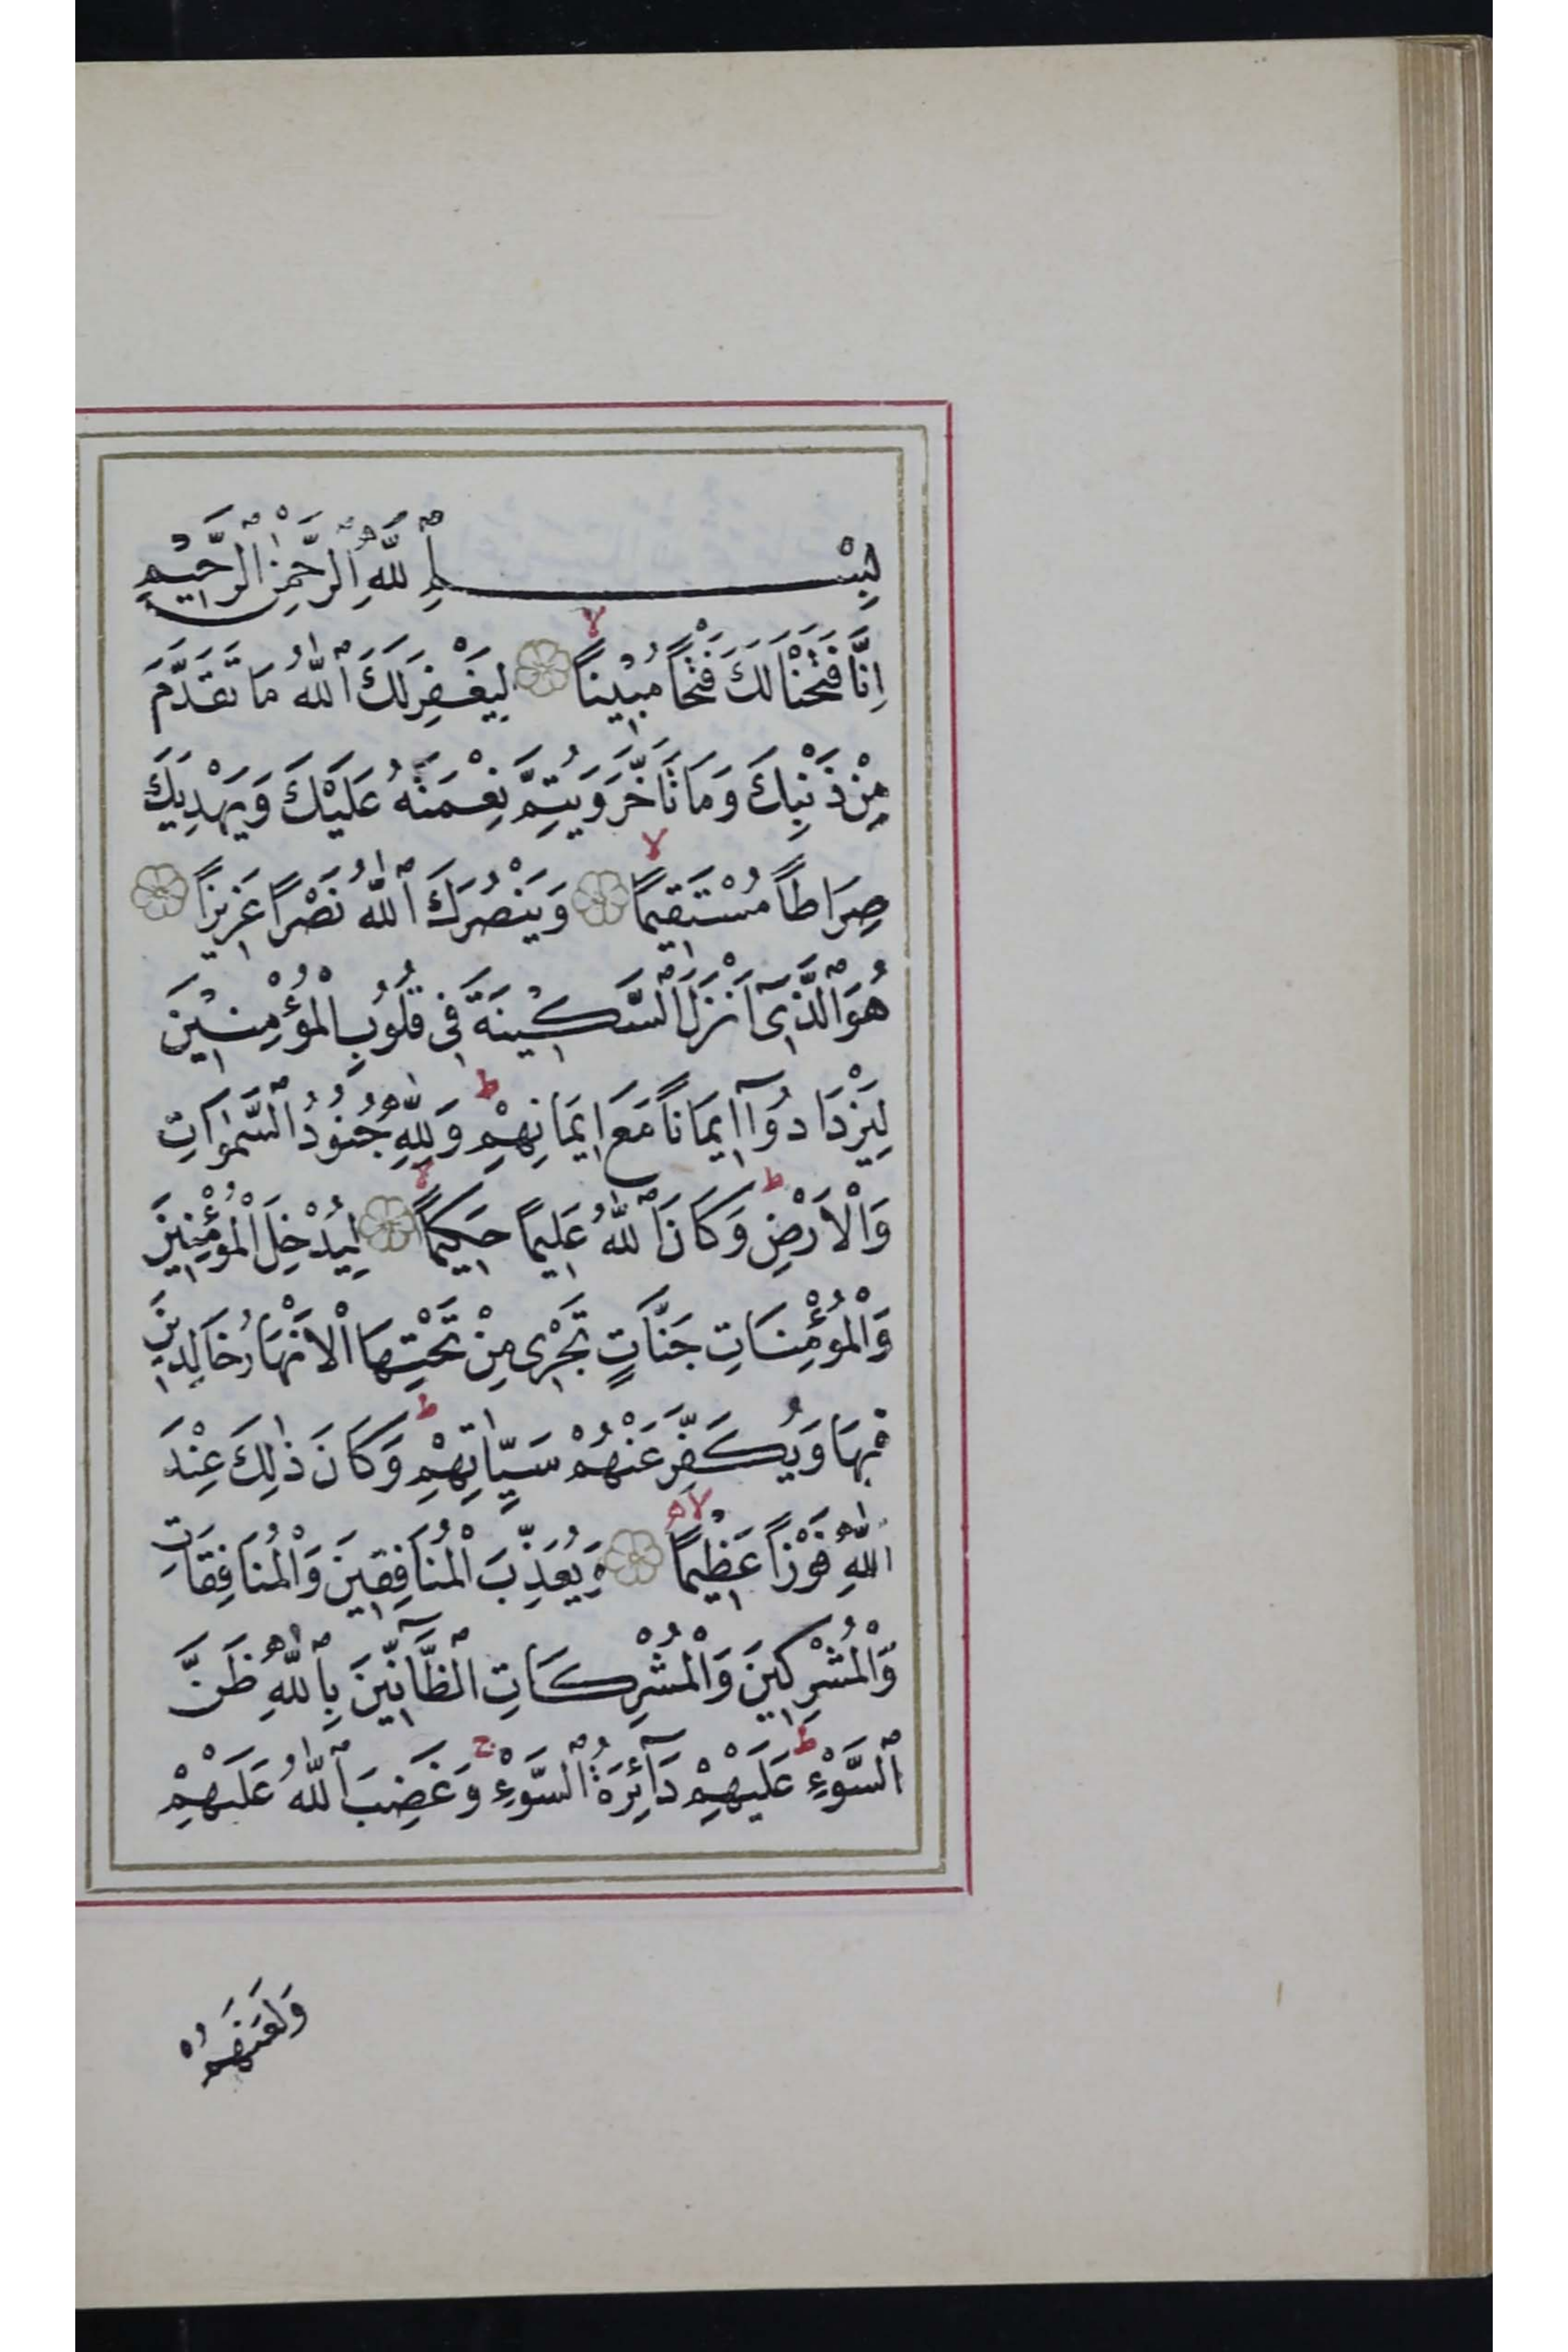 بِسْمِ ٱللَّهِ ٱلرَّحْمٰنِ ٱلرَّحِيمِ
اِنَّا فَتَحْنَا لَكَ فَتْحًا مُبِينًا لِيَغْفِرَ لَكَ ٱللّٰهُ مَا تَقَدَّمَ
مِنْ ذَنْبِكَ وَمَا تَاَخَّرَ وَيُتِمَّ نِعْمَتَهُ عَلَيْكَ وَيَهْدِيَكَ
صِرَاطًا مُسْتَقِيمًا وَيَنْصُرَكَ ٱللّٰهُ نَصْرًا عَزِيزًا
هُوَ ٱلَّذِىٓ اَنْزَلَ ٱلسَّكِينَةَ فِى قُلُوبِ الْمُؤْمِنِينَ
لِيَزْدَادُوٓا اِيمَانًا مَعَ اِيمَانِهِمْ ط وَلِلّٰهِ جُنُودُ ٱلسَّمٰوَاتِ
وَالْاَرْضِ ط وَكَانَ ٱللّٰهُ عَلِيمًا حَكِيمًا لا لِيُدْخِلَ الْمُؤْمِنِينَ
وَالْمُؤْمِنَاتِ جَنَّاتٍ تَجْرِى مِنْ تَحْتِهَا الْاَنْهَارُ خَالِدِينَ
فِيهَا وَيُكَفِّرَ عَنْهُمْ سَيِّاٰتِهِمْ ط وَكَانَ ذٰلِكَ عِنْدَ
اللّٰهِ فَوْزًا عَظِيمًا لا وَيُعَذِّبَ الْمُنَافِقِينَ وَالْمُنَافِقَاتِ
وَالْمُشْرِكِينَ وَالْمُشْرِكَاتِ ٱلظَّآنِّينَ بِٱللّٰهِ ظَنَّ
ٱلسَّوْءِ ط عَلَيْهِمْ دَآئِرَةُ ٱلسَّوْءِ ج وَغَضِبَ ٱللّٰهُ عَلَيْهِمْ
وَلَعَنَهُمْ